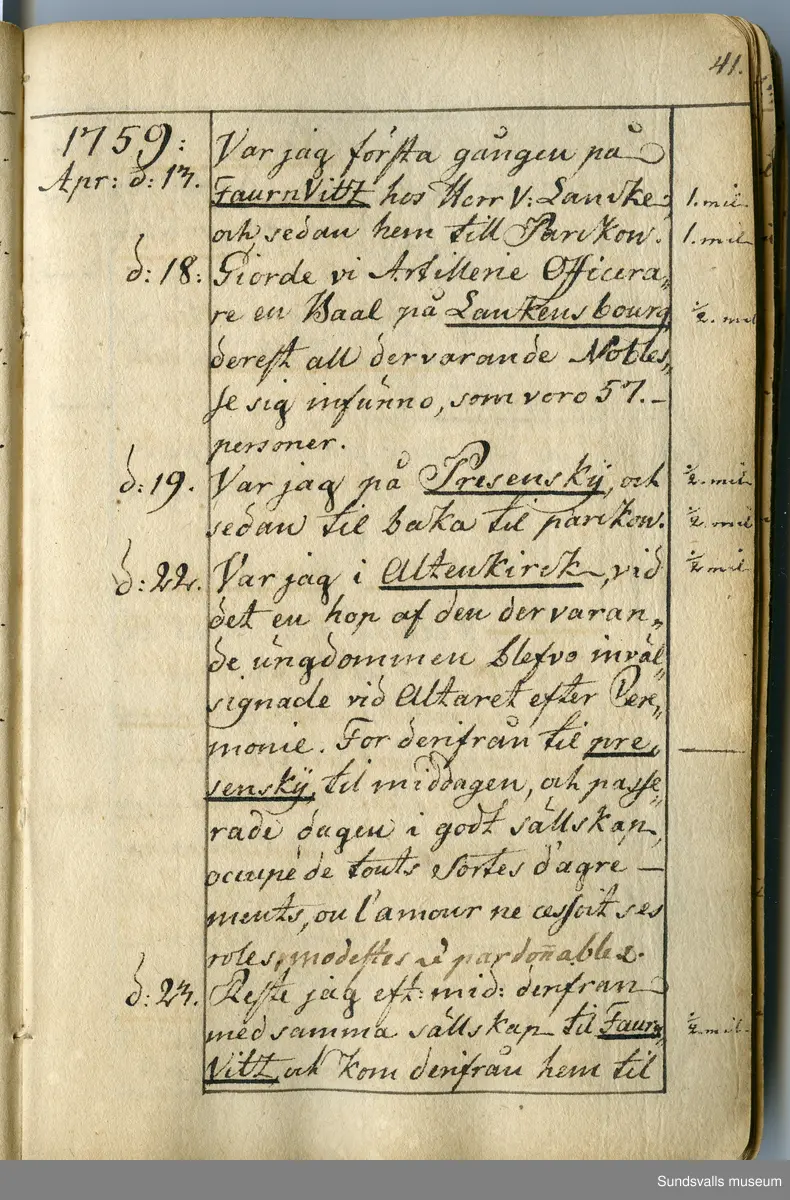 41.
1759:
Apr: d: 13. Var jag första gången på
FaurnVitt hos Herr V: Lancke: 1. mil
och sedan hem till Parckow. 1. mil
d: 18: Giorde vi Artillerie Officera„
re en Baal på Lankensbourg ½. mil
derest all dervarande Nobles„
se sig infunno, som voro 57.-
personer.
d: 19. Var jag på Presenskÿ, och ½. mil
sedan til baka til parckow. ½. mil
d: 22. Var jag i Altenkirck, vid ½ mil
det en hop af den dervaran„
de ungdommen blefvo inväl„
signade vid Altaret efter Cere„
monie. For derifrån til pre„
senskÿ, til middagen, och passe„
rade dagen i godt sällskap,
occupé de touts sortes d'agre—
ments, ou l'amour ne cessoit ses
roles, modestes et pardoñables.
d: 23. Reste jag eft: mid: derifran
med samma sällskap til Faurn„ ½ mil
Vitt, och kom derifrån hem til
Sundsvalls museum